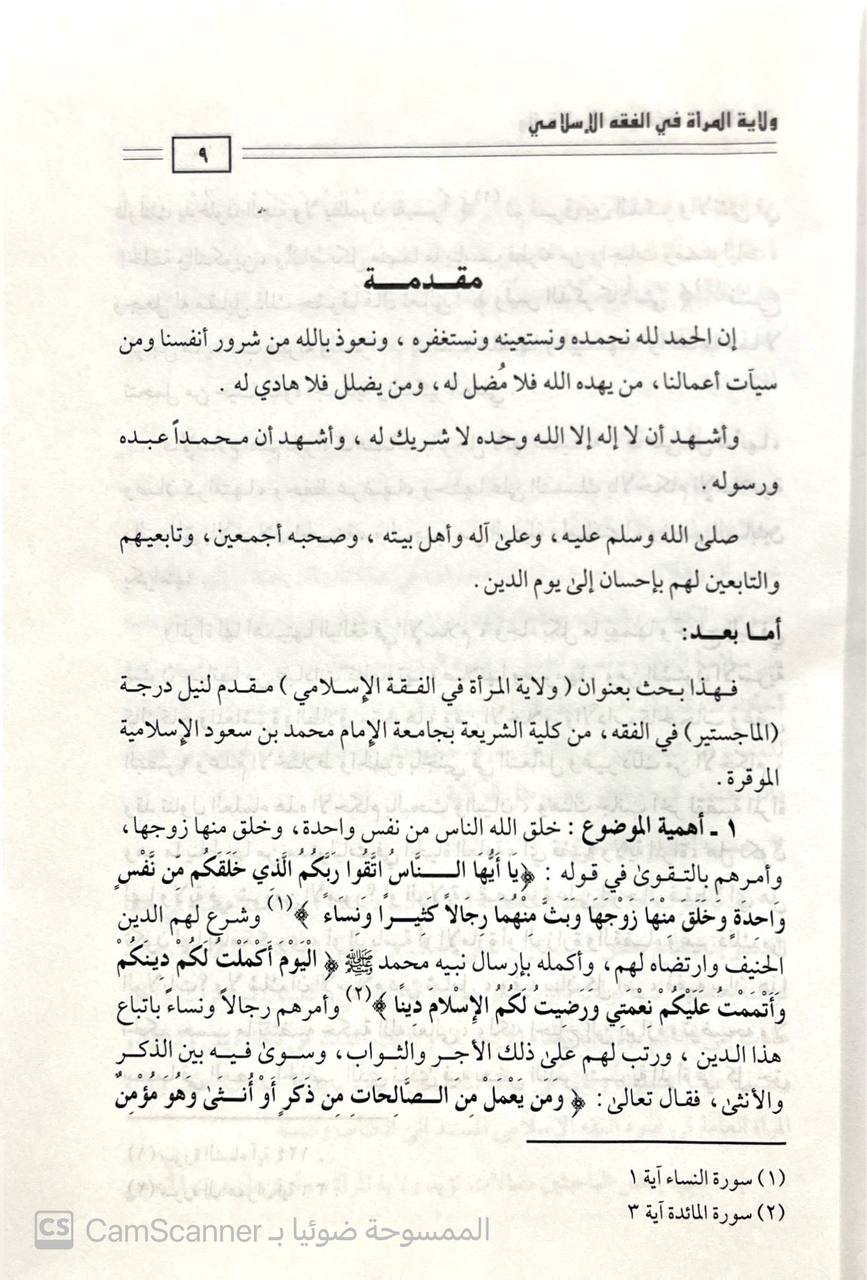 ولاية المرأة في الفقه الإسلامي
٩
مقدمة
إن الحمد لله نحمده ونستعينه ونستغفره ، ونعوذ بالله من شرور أنفسنا ومن
سيآت أعمالنا، من يهده الله فلا مُضل له، ومن يضلل فلا هادي له .
وأشهد أن لا إله إلا الله وحده لا شريك له ، وأشهد أن محمداً عبده
ورسوله .
صلىٰ الله وسلم عليه، وعلىٰ آله وأهل بيته ، وصحبه أجمعين، وتابعيهم
والتابعين لهم بإحسان إلىٰ يوم الدين .
أما بعد:
فهذا بحث بعنوان ( ولاية المرأة في الفقة الإسلامي ) مقدم لنيل درجة
(الماجستير) في الفقه، من كلية الشريعة بجامعة الإمام محمد بن سعود الإسلامية
الموقرة .
١ ـ أهمية الموضوع : خلق الله الناس من نفس واحدة، وخلق منها زوجها،
وأمرهم بالتقوىٰ في قوله : ﴿يَا أَيُّهَا النَّاسُ اتَّقُوا رَبَّكُمُ الَّذِي خَلَقَكُم مِّن نَّفْسٍ
وَاحِدَةٍ وَخَلَقَ مِنْهَا زَوْجَهَا وَبَثَّ مِنْهُمَا رِجَالاً كَثِيرًا وَنِسَاءً ﴾(١) وشرع لهم الدين
الحنيف وارتضاه لهم، وأكمله بإرسال نبيه محمد ﷺ ﴿ الْيَوْمَ أَكْمَلْتُ لَكُمْ دِينَكُمْ
وَأَتْمَمْتُ عَلَيْكُمْ نِعْمَتِي وَرَضِيتُ لَكُمُ الإِسْلامَ دِينًا ﴾(٢) وأمرهم رجالاً ونساءً باتباع
هذا الدين ، ورتب لهم علىٰ ذلك الأجر والثواب، وسوىٰ فيه بين الذكر
والأنثىٰ ، فقال تعالىٰ: ﴿ وَمَن يَعْمَلْ مِنَ الصَّالِحَاتِ مِن ذَكَرٍ أَوْ أُنثَىٰ وَهُوَ مُؤْمِنٌ
(١) سورة النساء آية ١
(٢) سورة المائدة آية ٣
CS CamScanner الممسوحة ضوئيا بـ